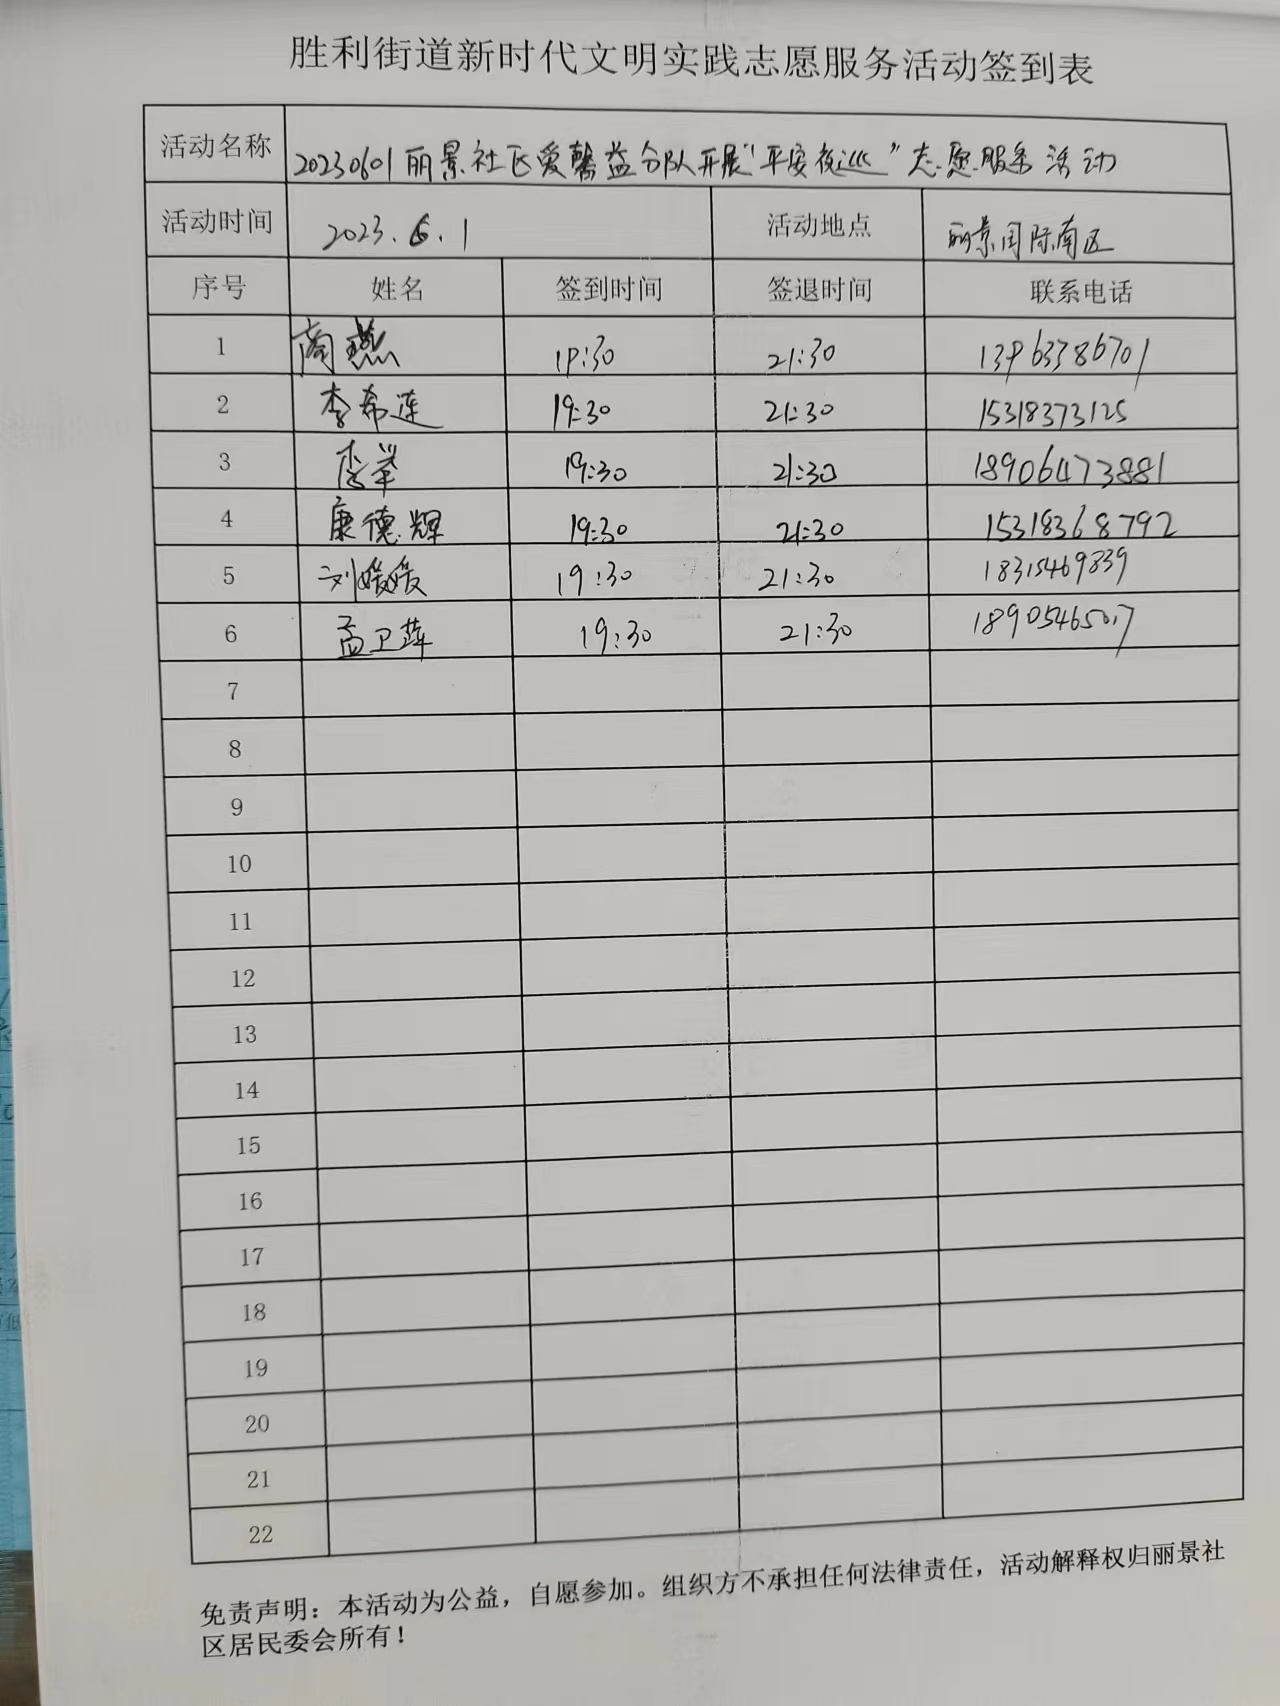 胜利街道新时代文明实践志愿服务活动签到表
活动名称 20230601丽景社区爱馨益分队开展“平安夜巡”志愿服务活动
活动时间 2023.6.1 活动地点 丽景国际南区
序号 姓名 签到时间 签退时间 联系电话
1 商燕 19:30 21:30 13963386701
2 李希莲 19:30 21:30 15318373125
3 李苹 19:30 21:30 18906473881
4 康德辉 19:30 21:30 15318368792
5 刘媛媛 19:30 21:30 18315469839
6 孟卫萍 19:30 21:30 18905465017
7
8
9
10
11
12
13
14
15
16
17
18
19
20
21
22
免责声明：本活动为公益，自愿参加。组织方不承担任何法律责任，活动解释权归丽景社
区居民委会所有！